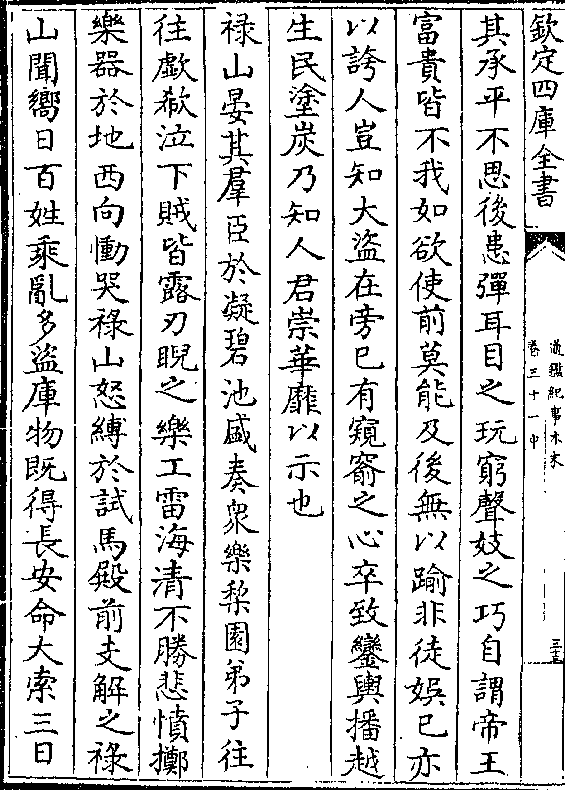 欽定四庫全書
通鑑紀事本末
卷三十一中
三十五
其承平不思後患殫耳目之玩窮聲妓之巧自謂帝王
富貴皆不我如欲使前莫能及後無以踰非徒娛已亦
以誇人豈知大盜在旁已有窺窬之心卒致鑾輿播越
生民塗炭乃知人君崇華靡以示也
祿山宴其羣臣於凝碧池盛奏衆樂梨園弟子往
往歔欷泣下賊皆露刃睨之樂工雷海清不勝悲憤擲
樂器於地西向慟哭祿山怒縛於試馬殿前支解之祿
山聞嚮日百姓乘亂多盜庫物既得長安命大索三日